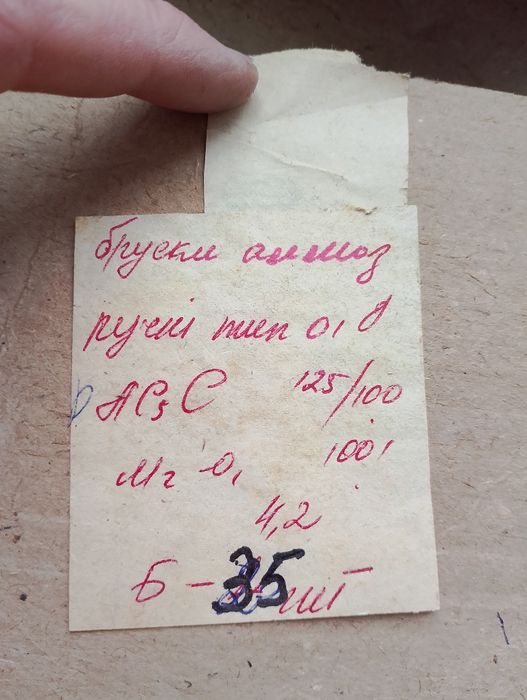 бруски алмаз
ручні тип 0,8
АС5С 125/100
М2-0, 100%
4,2
Б - 35 шт